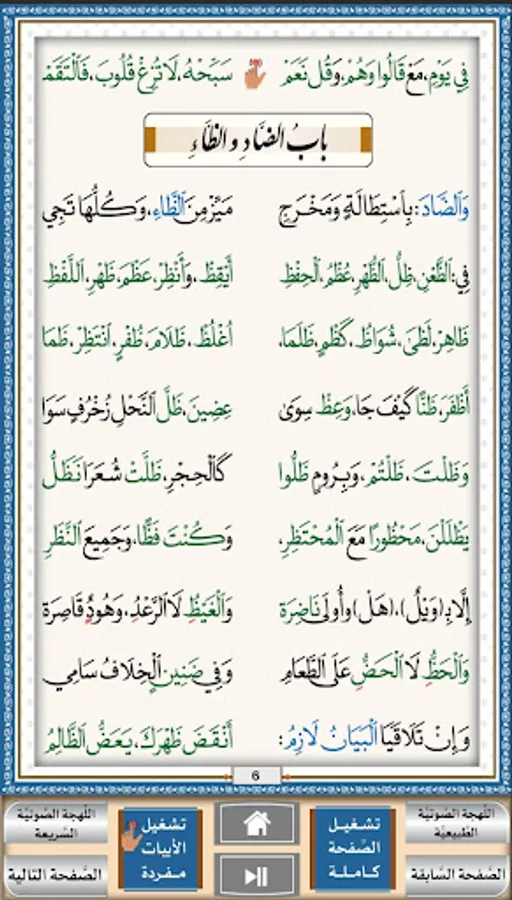 فِي يَوْمِ، مَعْ قَالُوا وَهُمْ، وَقُل نَعَمْ سَبِّحْهُ، لَا تُزِغْ قُلُوبَ، فَالْتَقَمْ
بَابُ الضَّادِ وَالظَّاءِ
وَالضَّادَ: بِاسْتِطَالَةٍ وَمَخْرَجِ مَيِّزْ مِنَ الظَّاءِ، وَكُلُّهَا تَجِي
فِي: الظَّعْنِ، ظِلُّ، الظُّهْرِ، عُظْمُ، الْحِفْظِ أَيْقِظْ، وَأَنْظِرْ، عَظْمَ، ظَهْرِ، اللَّفْظِ
ظَاهِرْ، لَظَىٰ، شُوَاظُ، كَظْمٍ، ظَلَمَا، اغْلُظْ، ظَلَامَ، ظُفْرٍ، انْتَظِرْ، ظَمَا
أَظْفَرَ، ظَنًّا كَيْفَ جَا، وَعِظْ سِوَىٰ عِضِينَ، ظَلَّ النَّحْلِ زُخْرُفٍ سَوَا
وَظَلْتَ، ظَلْتُمْ، وَبِرُومٍ ظَلُّوا كَالْحِجْرِ، ظَلَّتْ شُعَرَا نَظَلُّ
يَظْلَلْنَ، مَحْظُورًا مَعَ الْمُحْتَظِرِ، وَكُنْتَ فَظًّا، وَجَمِيعَ النَّظَرِ
إِلَّا بِـ(وَيْلٌ)، (هَلْ) وَأُولَىٰ نَاضِرَةْ وَالْغَيْظُ لَا الرَّعْدُ، وَهُودٌ قَاصِرَةْ
وَالْحَظُّ لَا الْحَضُّ عَلَى الطَّعَامِ وَفِي ضَنِينٍ الْخِلَافُ سَامِي
وَإِنْ تَلَاقَيَا الْبَيَانُ لَازِمُ: أَنْقَضَ ظَهْرَكَ، يَعَضُّ الظَّالِمُ
6
اللهجة الصوتيّة الطّبيعيّة
تشغـيل الصّفحة كـامـلـة
تشغيل الأبيات مـفـردة
اللهجة الصّوتيّة السّريعة
الصّفحة السّابقة
الصّفحة التالية